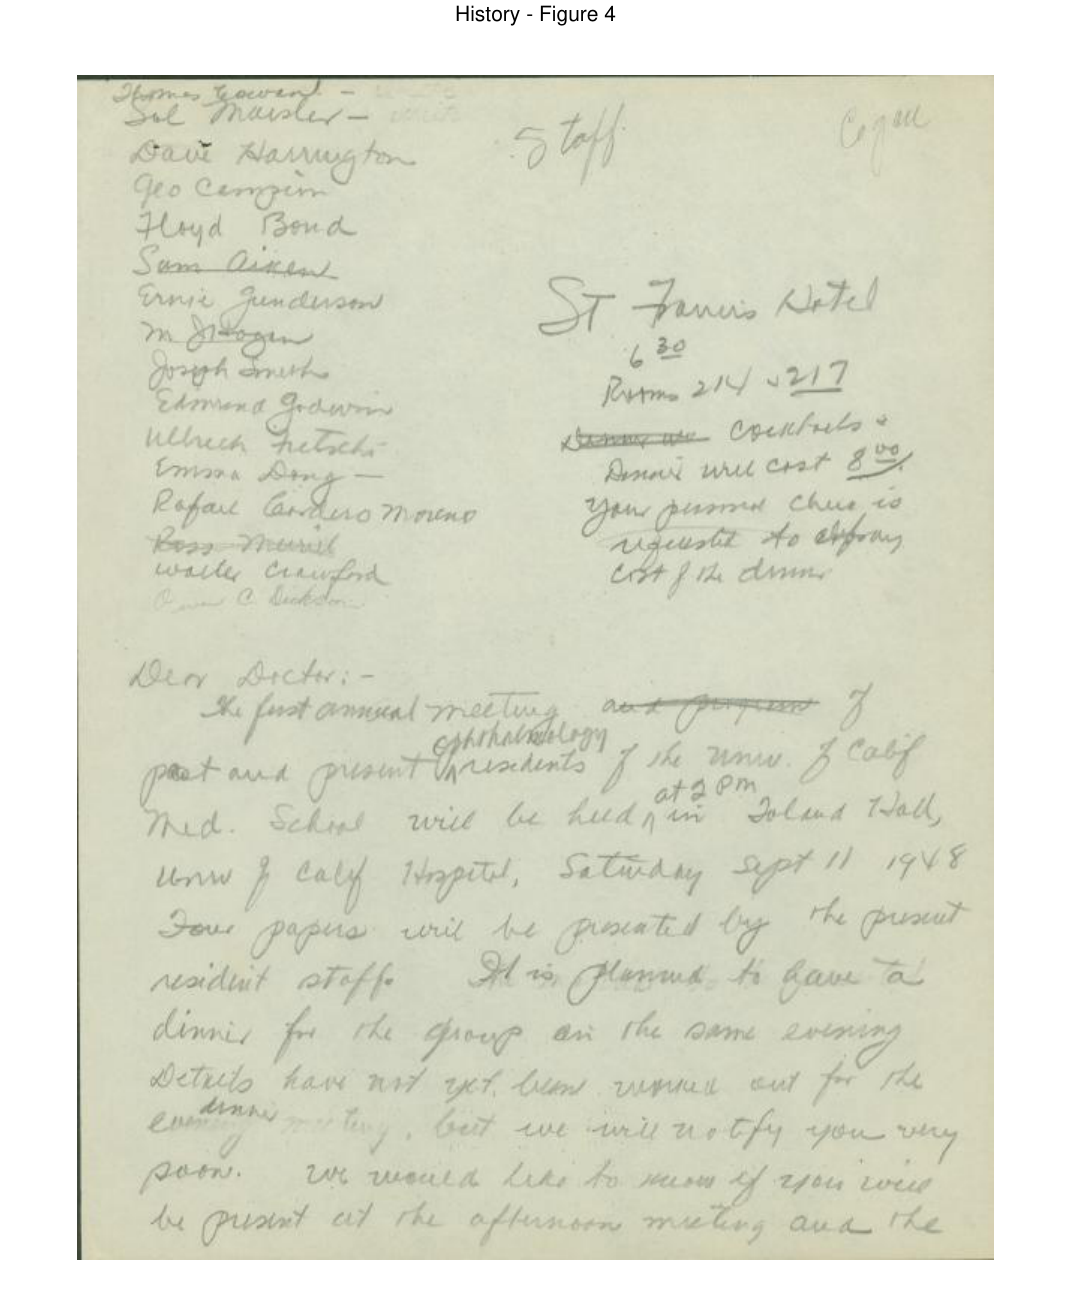 History - Figure 4
Thomas Cowan -
Sol Maisler -
Staff
Cogan
Dave Harrington
Geo Campion
Floyd Bond
Sam Aiken
Ernie Gunderson
St Francis Hotel
M J Hogan
6 30
Joseph Smith
Rooms 214 + 217
Edmund Godwin
Cocktails +
Ullrich Fretschi
Dinner will cost 8 00
Emma Dong -
Your personal check is
Rafael Cordero Moreno
requested to defray
Ross Muriel
cost of the dinner
Walter Crawford
Owen C. Dickson
Dear Doctor: -
The first annual meeting and program of
past and present ophthalmology residents of the Univ. of Calif
Med. School will be held at 2 PM in Toland Hall,
Univ of Calif Hospital, Saturday Sept 11 1948
Four papers will be presented by the present
resident staff. It is planned to have a
dinner for the group on the same evening
Details have not yet been worked out for the
evening dinner meeting, but we will notify you very
soon. We would like to know if you will
be present at the afternoon meeting and the